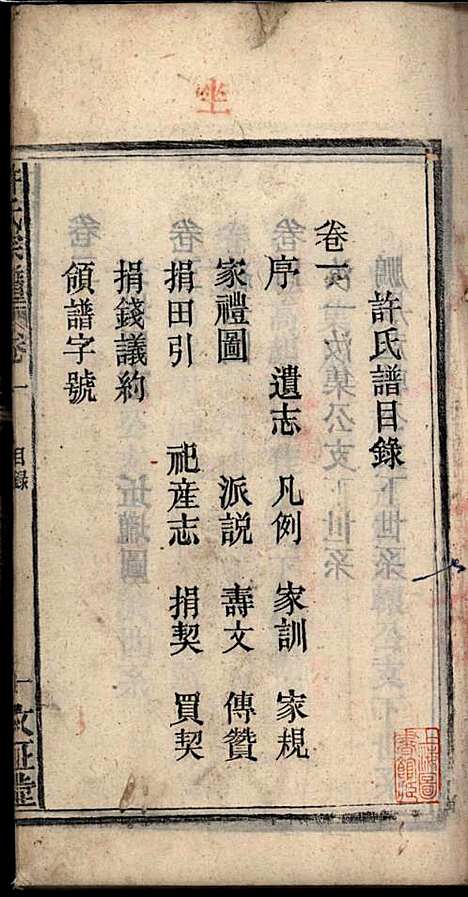 坐
許氏譜目錄
卷一
序 遺志 凡例 家訓 家規
家禮圖 派説 壽文 傳贊
捐田引 祀産志 捐契 買契
捐錢議約
領譜字號
許氏宗譜 卷一 目録 一
上海圖書館藏